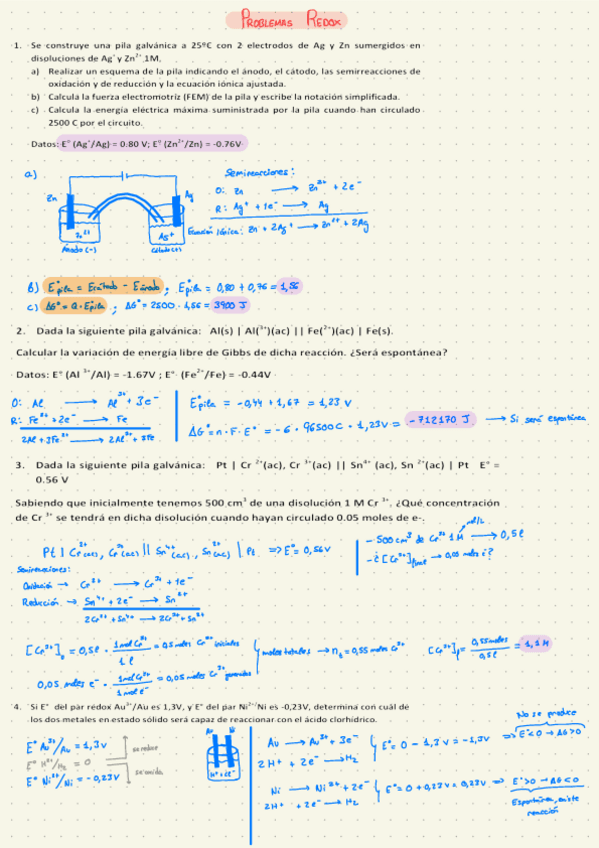 PROBLEMAS REDOX
1. Se construye una pila galvánica a 25ºC con 2 electrodos de Ag y Zn sumergidos en
disoluciones de Ag⁺ y Zn²⁺ 1M.
a) Realizar un esquema de la pila indicando el ánodo, el cátodo, las semirreacciones de
oxidación y de reducción y la ecuación iónica ajustada.
b) Calcula la fuerza electromotriz (FEM) de la pila y escribe la notación simplificada.
c) Calcula la energía eléctrica máxima suministrada por la pila cuando han circulado
2500 C por el circuito.
Datos: E° (Ag⁺/Ag) = 0.80 V; E° (Zn²⁺/Zn) = -0.76V
a)
Semireacciones:
O: Zn → Zn²⁺ + 2e⁻
R: Ag⁺ + 1e⁻ → Ag
Ecuación Iónica: Zn + 2Ag⁺ → Zn²⁺ + 2Ag
Zn
Ag
Zn²⁺
Ag⁺
Ánodo (-)
Cátodo (+)
B) E°pila = Ecátodo - Eánodo ; E°pila = 0,80 + 0,76 = 1,56
C) ΔG° = Q · E°pila ; ΔG° = 2500 · 1,56 = 3900 J
2. Dada la siguiente pila galvánica: Al(s) | Al(³⁺)(ac) || Fe(²⁺)(ac) | Fe(s).
Calcular la variación de energía libre de Gibbs de dicha reacción. ¿Será espontánea?
Datos: E° (Al ³⁺/Al) = -1.67V ; E° (Fe²⁺/Fe) = -0.44V
O: Al → Al³⁺ + 3e⁻
R: Fe²⁺ + 2e⁻ → Fe
2Al + 3Fe²⁺ → 2Al³⁺ + 3Fe
E°pila = -0,44 + 1,67 = 1,23 V
ΔG° = n · F · E° = -6 · 96500C · 1,23V = -712170 J → Si será espontánea
3. Dada la siguiente pila galvánica: Pt | Cr ²⁺(ac), Cr ³⁺(ac) || Sn⁴⁺ (ac), Sn ²⁺(ac) | Pt E° =
0.56 V
Sabiendo que inicialmente tenemos 500 cm³ de una disolución 1 M Cr ³⁺. ¿Qué concentración
de Cr ³⁺ se tendrá en dicha disolución cuando hayan circulado 0.05 moles de e-.
Pt | Cr²⁺(ac), Cr³⁺(ac) || Sn⁴⁺(ac), Sn²⁺(ac) | Pt ⇒ E° = 0,56V
mol/L
- 500cm³ de Cr³⁺ 1M → 0,5 l
- ¿[Cr³⁺]final → 0,05 moles é?
Semireacciones:
Oxidación → Cr²⁺ → Cr³⁺ + 1e⁻
Reducción → Sn⁴⁺ + 2e⁻ → Sn²⁺
2Cr²⁺ + Sn⁴⁺ → 2Cr³⁺ + Sn²⁺
[Cr³⁺]₀ = 0,5l · 1mol Cr³⁺ / 1l = 0,5 moles Cr³⁺ iniciales
0,05 moles e⁻ · 1mol Cr³⁺ / 1mol e⁻ = 0,05 moles Cr³⁺ generados
moles totales → nt = 0,55 moles Cr³⁺
[Cr³⁺]f = 0,55moles / 0,5l = 1,1 M
4. Si E° del par rédox Au³⁺/Au es 1,3V, y E° del par Ni²⁺/Ni es -0,23V, determina con cuál de
los dos metales en estado sólido será capaz de reaccionar con el ácido clorhídrico.
E° Au³⁺/Au = 1,3V
E° H⁺/H₂ = 0
E° Ni²⁺/Ni = -0,23V
se reduce
se oxida
Au
Ni
H⁺ + e⁻
Au → Au³⁺ + 3e⁻
2H⁺ + 2e⁻ → H₂
E° = 0 - 1,3V = -1,3V ⇒ E°<0 → ΔG>0
No se produce
Ni → Ni²⁺ + 2e⁻
2H⁺ + 2e⁻ → H₂
E° = 0 + 0,23V = 0,23V ⇒ E°>0 → ΔG<0
Espontánea, existe
reacción